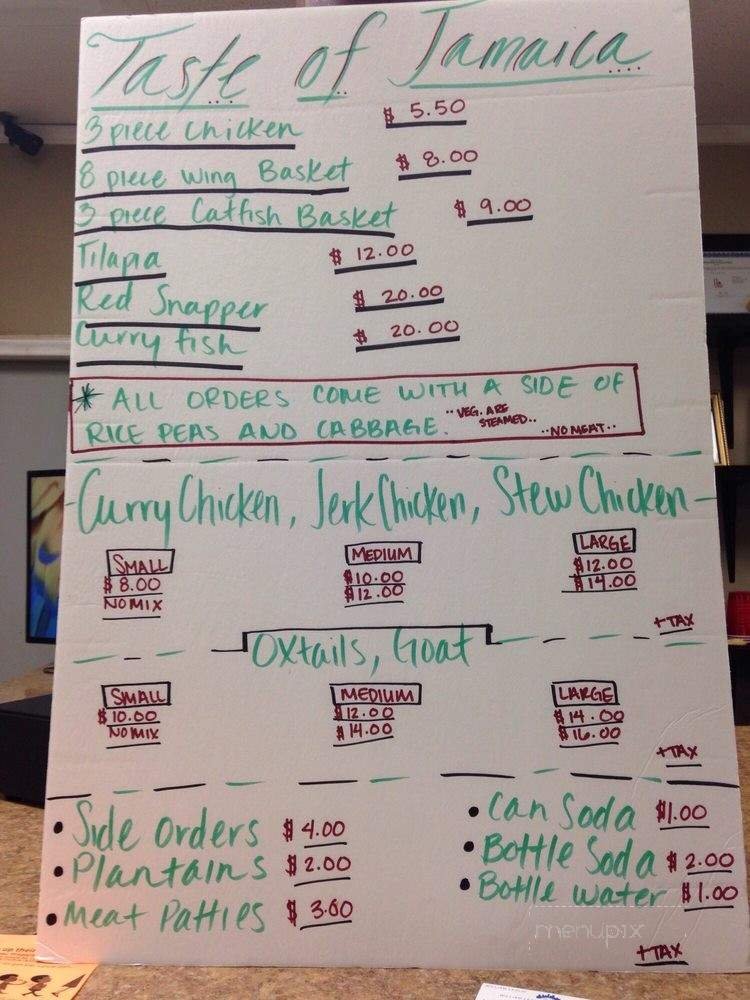 Taste of Jamaica
3 piece chicken $ 5.50
8 piece wing Basket $ 8.00
3 piece Catfish Basket $ 9.00
Tilapia $ 12.00
Red Snapper $ 20.00
Curry fish $ 20.00
* ALL ORDERS COME WITH A SIDE OF
RICE PEAS AND CABBAGE. ..VEG. ARE
STEAMED.. ..NO MEAT..
-Curry Chicken, Jerk Chicken, Stew Chicken-
SMALL MEDIUM LARGE
$ 8.00 $10.00 $12.00
NO MIX $12.00 $14.00
+TAX
Oxtails, Goat
SMALL MEDIUM LARGE
$ 10.00 $12.00 $14.00
NO MIX $14.00 $16.00
+TAX
• Side Orders $ 4.00
• Plantains $ 2.00
• Meat Patties $ 3.00
• Can Soda $1.00
• Bottle Soda $ 2.00
• Bottle water $1.00
+TAX
menupix